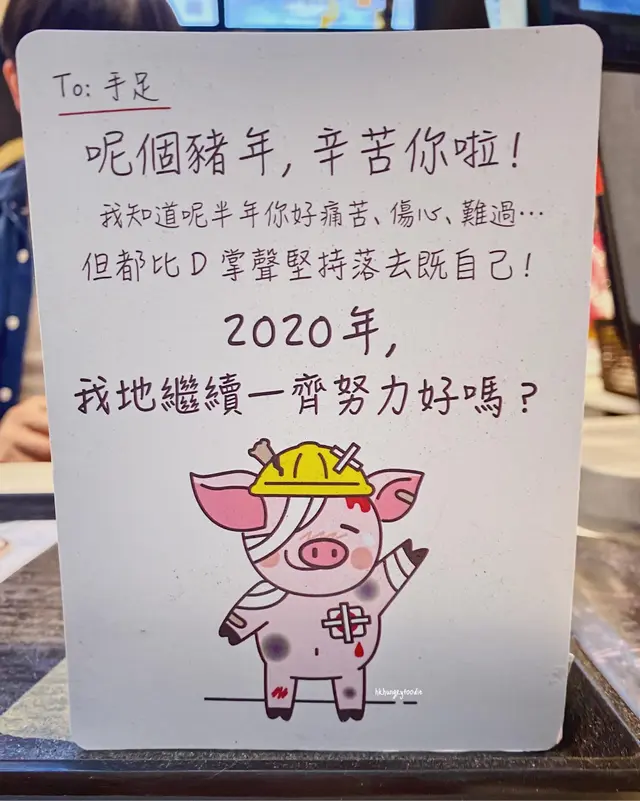 To: 手足
呢個豬年, 辛苦你啦!
我知道呢半年你好痛苦、傷心、難過…
但都比D掌聲堅持落去既自己!
2020年,
我地繼續一齊努力好嗎?
hkhungryfoodie